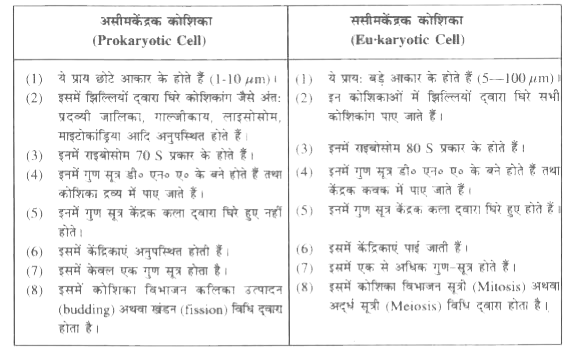 असीमकेंद्रक कोशिका
(Prokaryotic Cell)
(1) ये प्राय छोटे आकार के होते हैं (1-10 μm)।
(2) इसमें झिल्लियों द्वारा घिरे कोशिकांग जैसे अंतः
प्रदव्यी जालिका, गाल्जीकाय, लाइसोसोम,
माइटोकांड्रिया आदि अनुपस्थित होते हैं।
(3) इनमें राइबोसोम 70 S प्रकार के होते है।
(4) इनमें गुण सूत्र डी० एन० ए० के बने होते हैं तथा
कोशिका द्रव्य में पाए जाते हैं।
(5) इनमें गुण सूत्र केंद्रक कला द्वारा घिरे हुए नहीं
होते।
(6) इसमें केंद्रिकाएं अनुपस्थित होती हैं।
(7) इसमें केवल एक गुण सूत्र होता है।
(8) इसमें कोशिका विभाजन कलिका उत्पादन
(budding) अथवा खंडन (fission) विधि द्वारा
होता है।
ससीमकेंद्रक कोशिका
(Eu-karyotic Cell)
(1) ये प्रायः बड़े आकार के होते हैं (5—100 μm)।
(2) इन कोशिकाओं में झिल्लियों द्वारा घिरे सभी
कोशिकांग पाए जाते हैं।
(3) इनमें राइबोसोम 80 S प्रकार के होते हैं।
(4) इनमें गुण सूत्र डी० एन० ए० के बने होते हैं तथा
केंद्रक कवक में पाए जाते हैं।
(5) इनमें गुण सूत्र केंद्रक कला द्वारा घिरे हुए होते हैं।
(6) इसमें केंद्रिकाएं पाई जाती हैं।
(7) इसमें एक से अधिक गुण-सूत्र होते हैं।
(8) इसमें कोशिका विभाजन सूत्री (Mitosis) अथवा
अर्द्ध सूत्री (Meiosis) विधि द्वारा होता है।